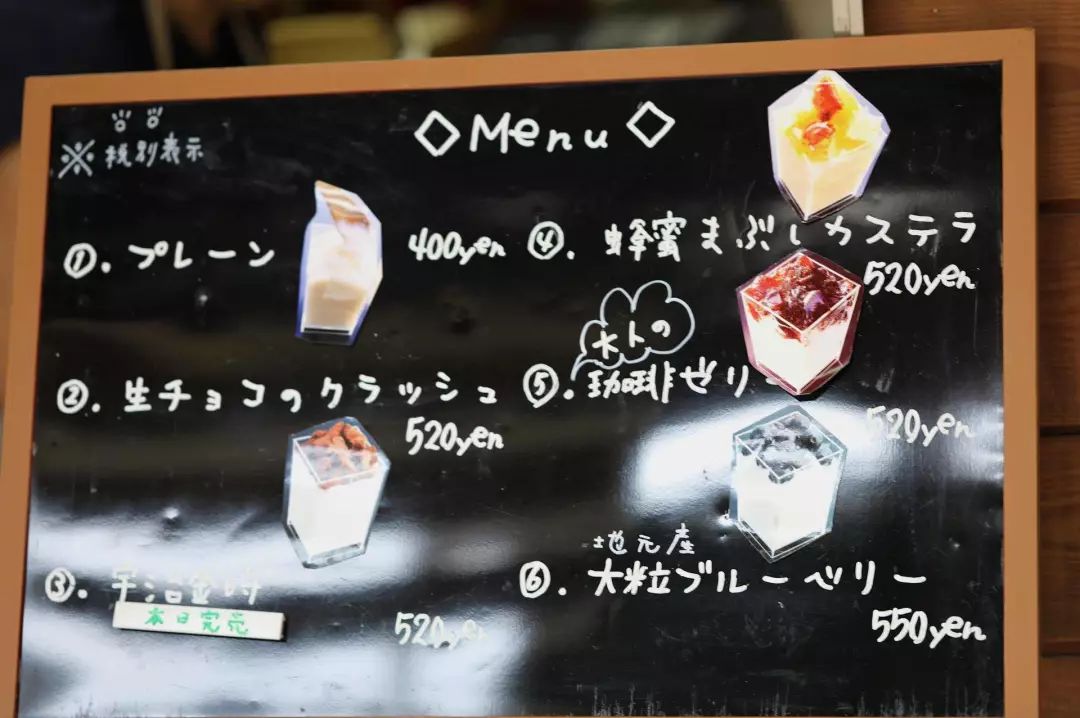 ◇Menu◇
※税別表示
①.プレーン 400yen
②.生チョコのクラッシュ
520yen
③.宇治金時
本日完売
520yen
④.蜂蜜まぶしカステラ
520yen
大人の
⑤.珈琲ゼリー
520yen
地元産
⑥.大粒ブルーベリー
550yen